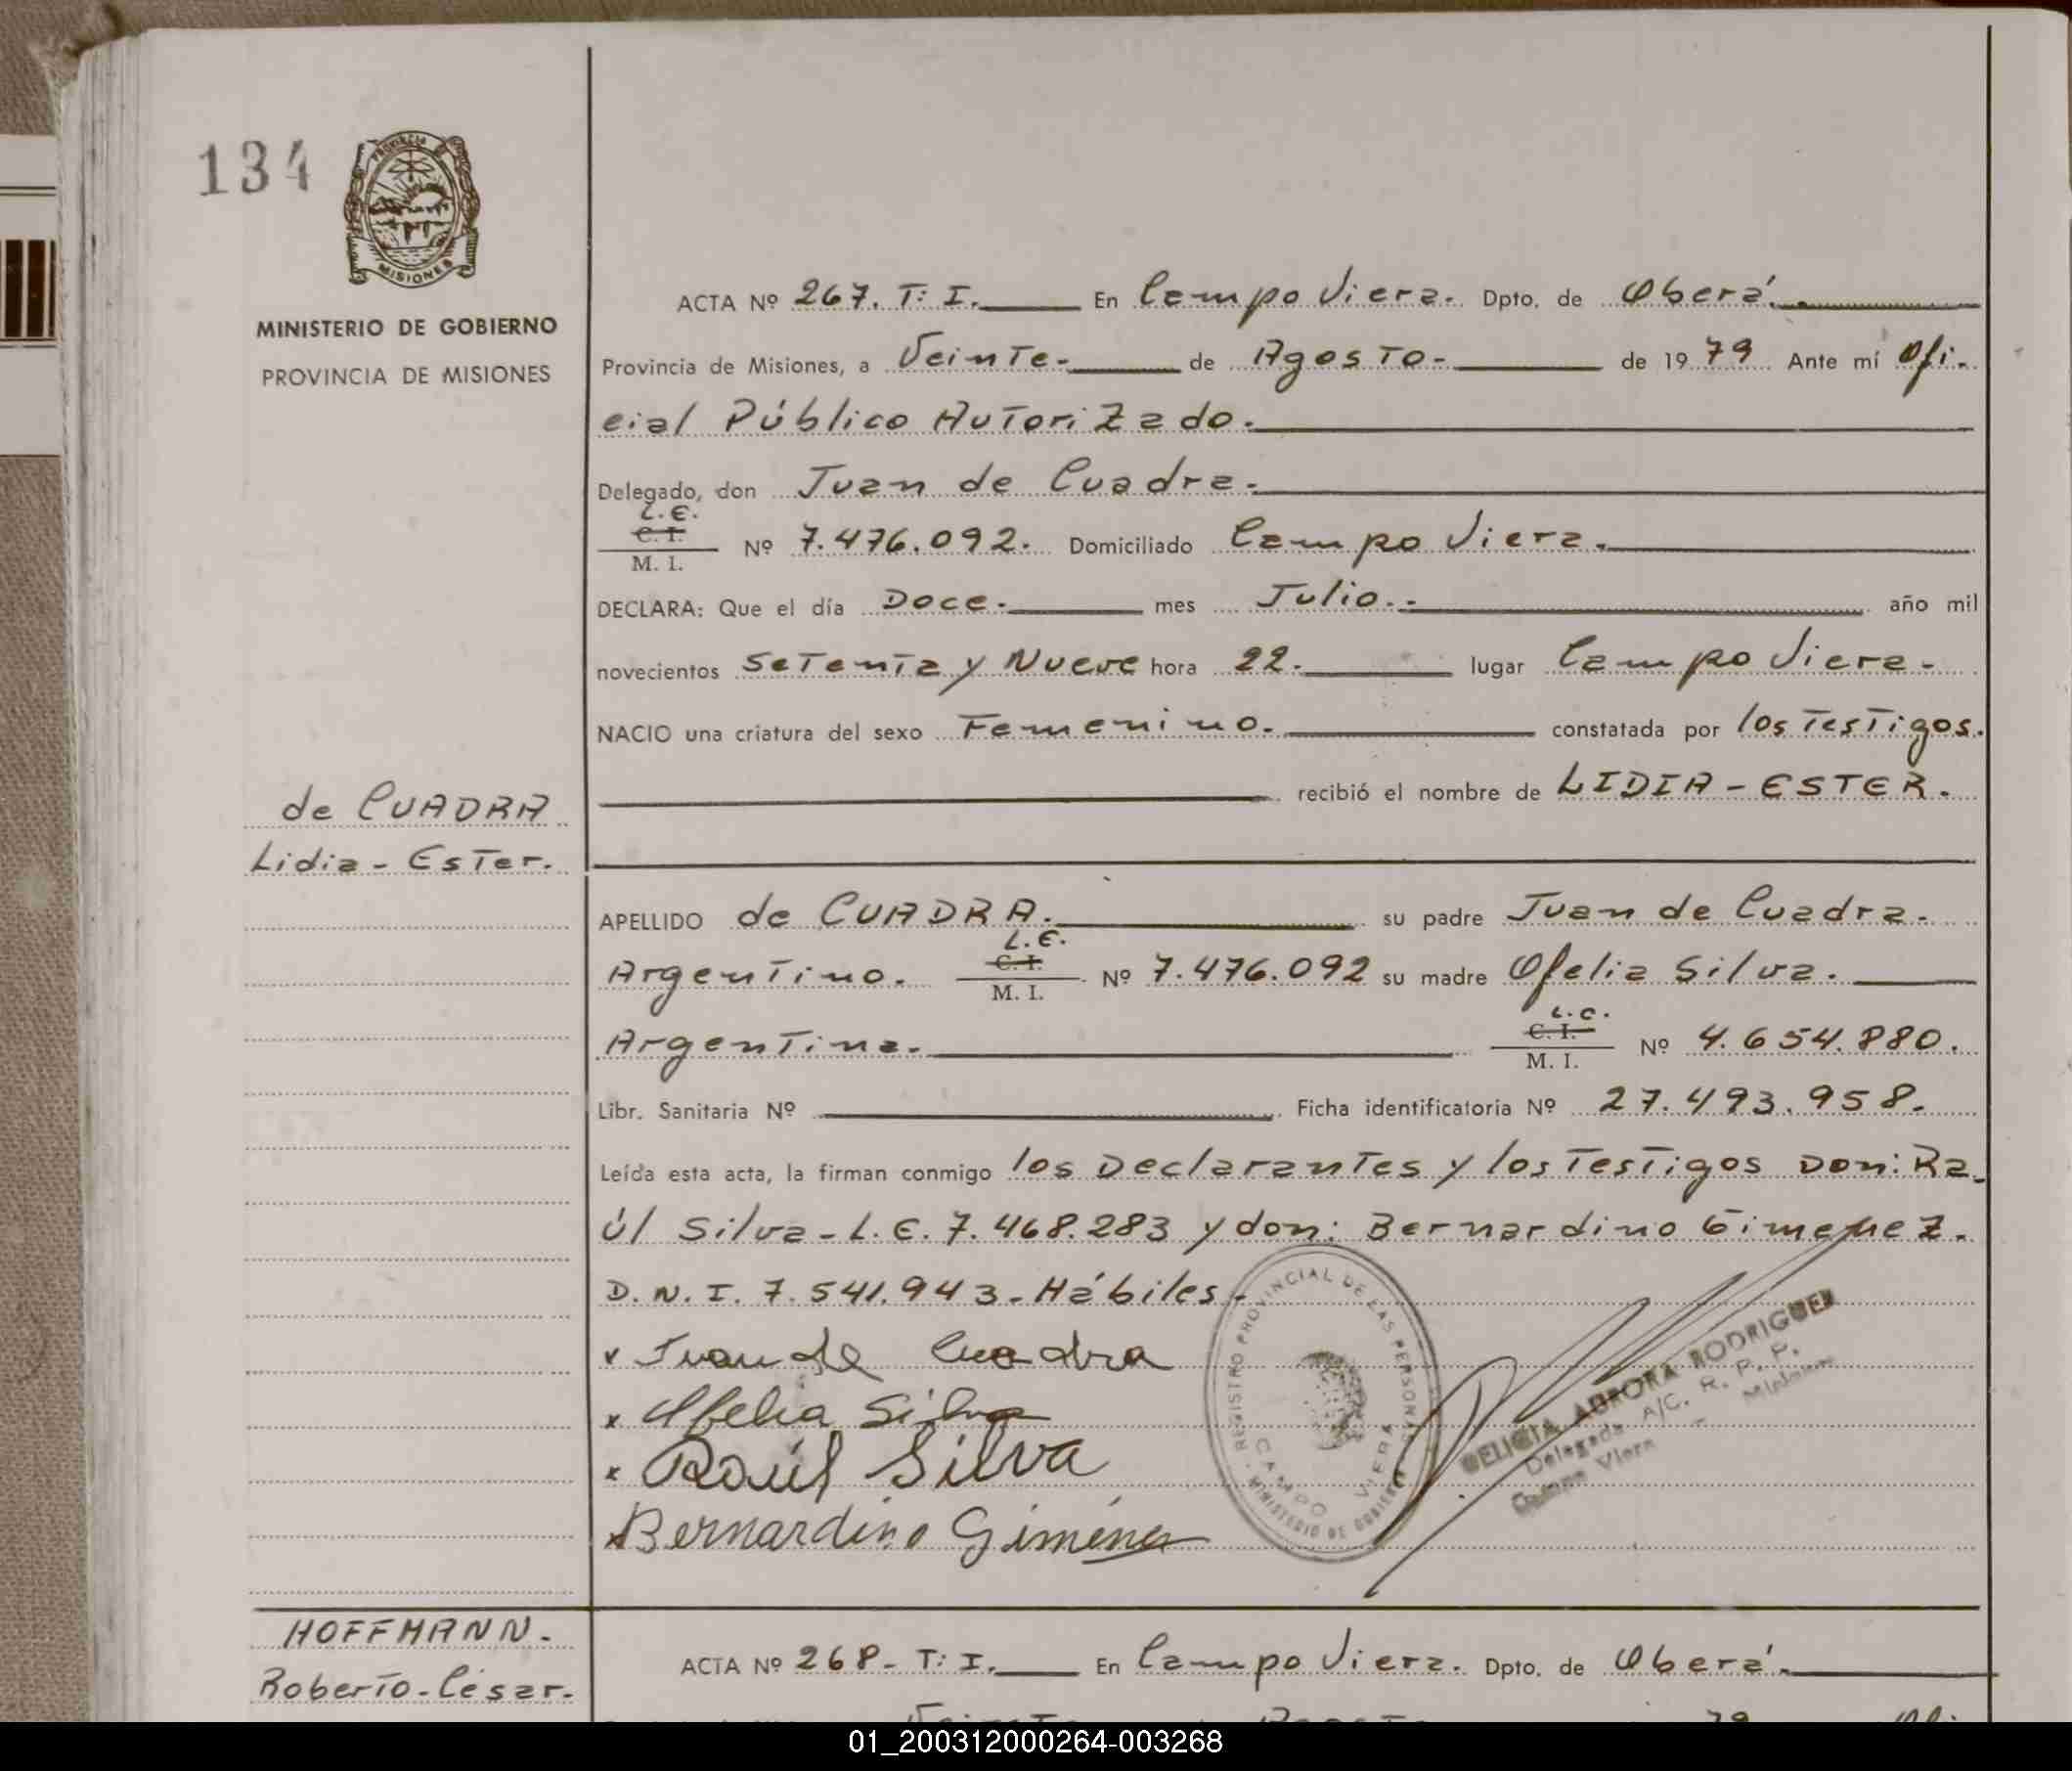 134
PROVINCIA DE
MISIONES
MINISTERIO DE GOBIERNO
PROVINCIA DE MISIONES
de CUADRA
Lidia - Ester.
ACTA Nº 267. T: I. En Campo Viera. Dpto. de Oberá.
Provincia de Misiones, a Veinte- de Agosto- de 1979 Ante mí Ofi-
cial Público Autorizado.
Delegado, don Juan de Cuadra.
L.E.
C. I.
M. I.
Nº 7.476.092. Domiciliado Campo Viera.
DECLARA: Que el día Doce. mes Julio.- año mil
novecientos Setenta y Nueve hora 22. lugar Campo Viera-
NACIO una criatura del sexo Femenino. constatada por los Testigos.
recibió el nombre de LIDIA - ESTER.
APELLIDO de CUADRA. su padre Juan de Cuadra.
L.E.
Argentino. C. I. Nº 7.476.092 su madre Ofelia Silva.
M. I.
L.C.
Argentina. C. I. Nº 4.654.880.
M. I.
Libr. Sanitaria Nº Ficha identificatoria Nº 27.493.958.
Leída esta acta, la firman conmigo los Declarantes y los Testigos Don: Ra-
úl Silva - L.E. 7.468.283 y don: Bernardino Gimenez.
D.N.I. 7.541.943 - Hábiles -
x Juan de Cuadra
x Ofelia Silva
x Raúl Silva
x Bernardino Giménez
REGISTRO PROVINCIAL DE LAS PERSONAS
CAMPO VIERA
MINISTERIO DE GOBIERNO
DELICIA AURORA RODRIGUEZ
Delegada A/C. R. P. P.
Campo Viera - Misiones
HOFFMANN.
Roberto - César.
ACTA Nº 268 - T: I. En Campo Viera. Dpto. de Oberá.
01_200312000264-003268